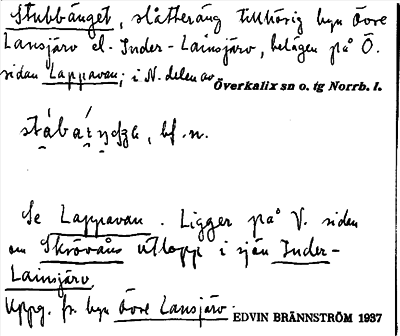 Stubbänget, slåtteräng tillhörig byn Övre
Lansjärv el. Inder-Lainsjärv, belägen på Ö.
sidan Lappavan; i N. delen av
Överkalix sn o. tg Norrb. l.
bf. n.
Se Lappavan. Ligger på V. sidan
om Skrövåns utlopp i sjön Inder-
Lainsjärv.
Uppg. fr. byn Övre Lansjärv.
EDVIN BRÄNNSTRÖM 1937